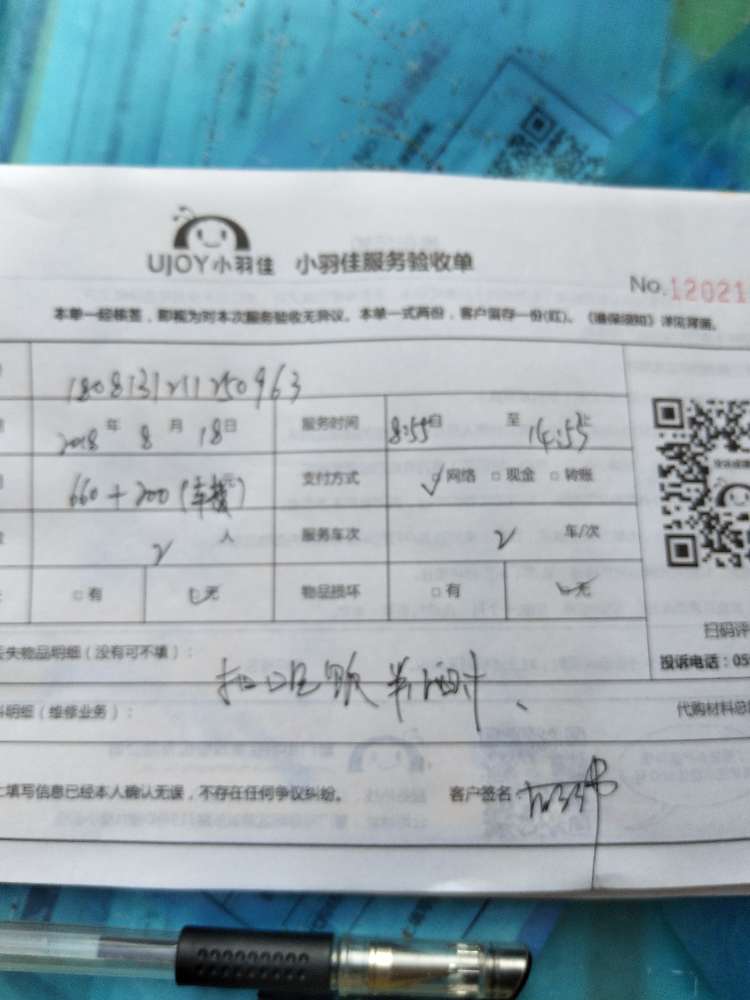 UJOY小羽佳 小羽佳服务验收单
No.12021
本单一经核签，即视为对本次服务验收无异议。本单一式两份，客户留存一份(红)。《维保须知》详见背面。
1808131211250963
2018年8月18日 服务时间 8:55自 至 14:53止
660+200(车费)元 支付方式 网络 现金 转账
2人 服务车次 2车/次
有 无 物品损坏 有 无
失物品明细（没有可不填）：
扫码评
投诉电话：05
扣吃饭半小时、
料明细（维修业务）： 代购材料总
上填写信息已经本人确认无误，不存在任何争议纠纷。 客户签名：